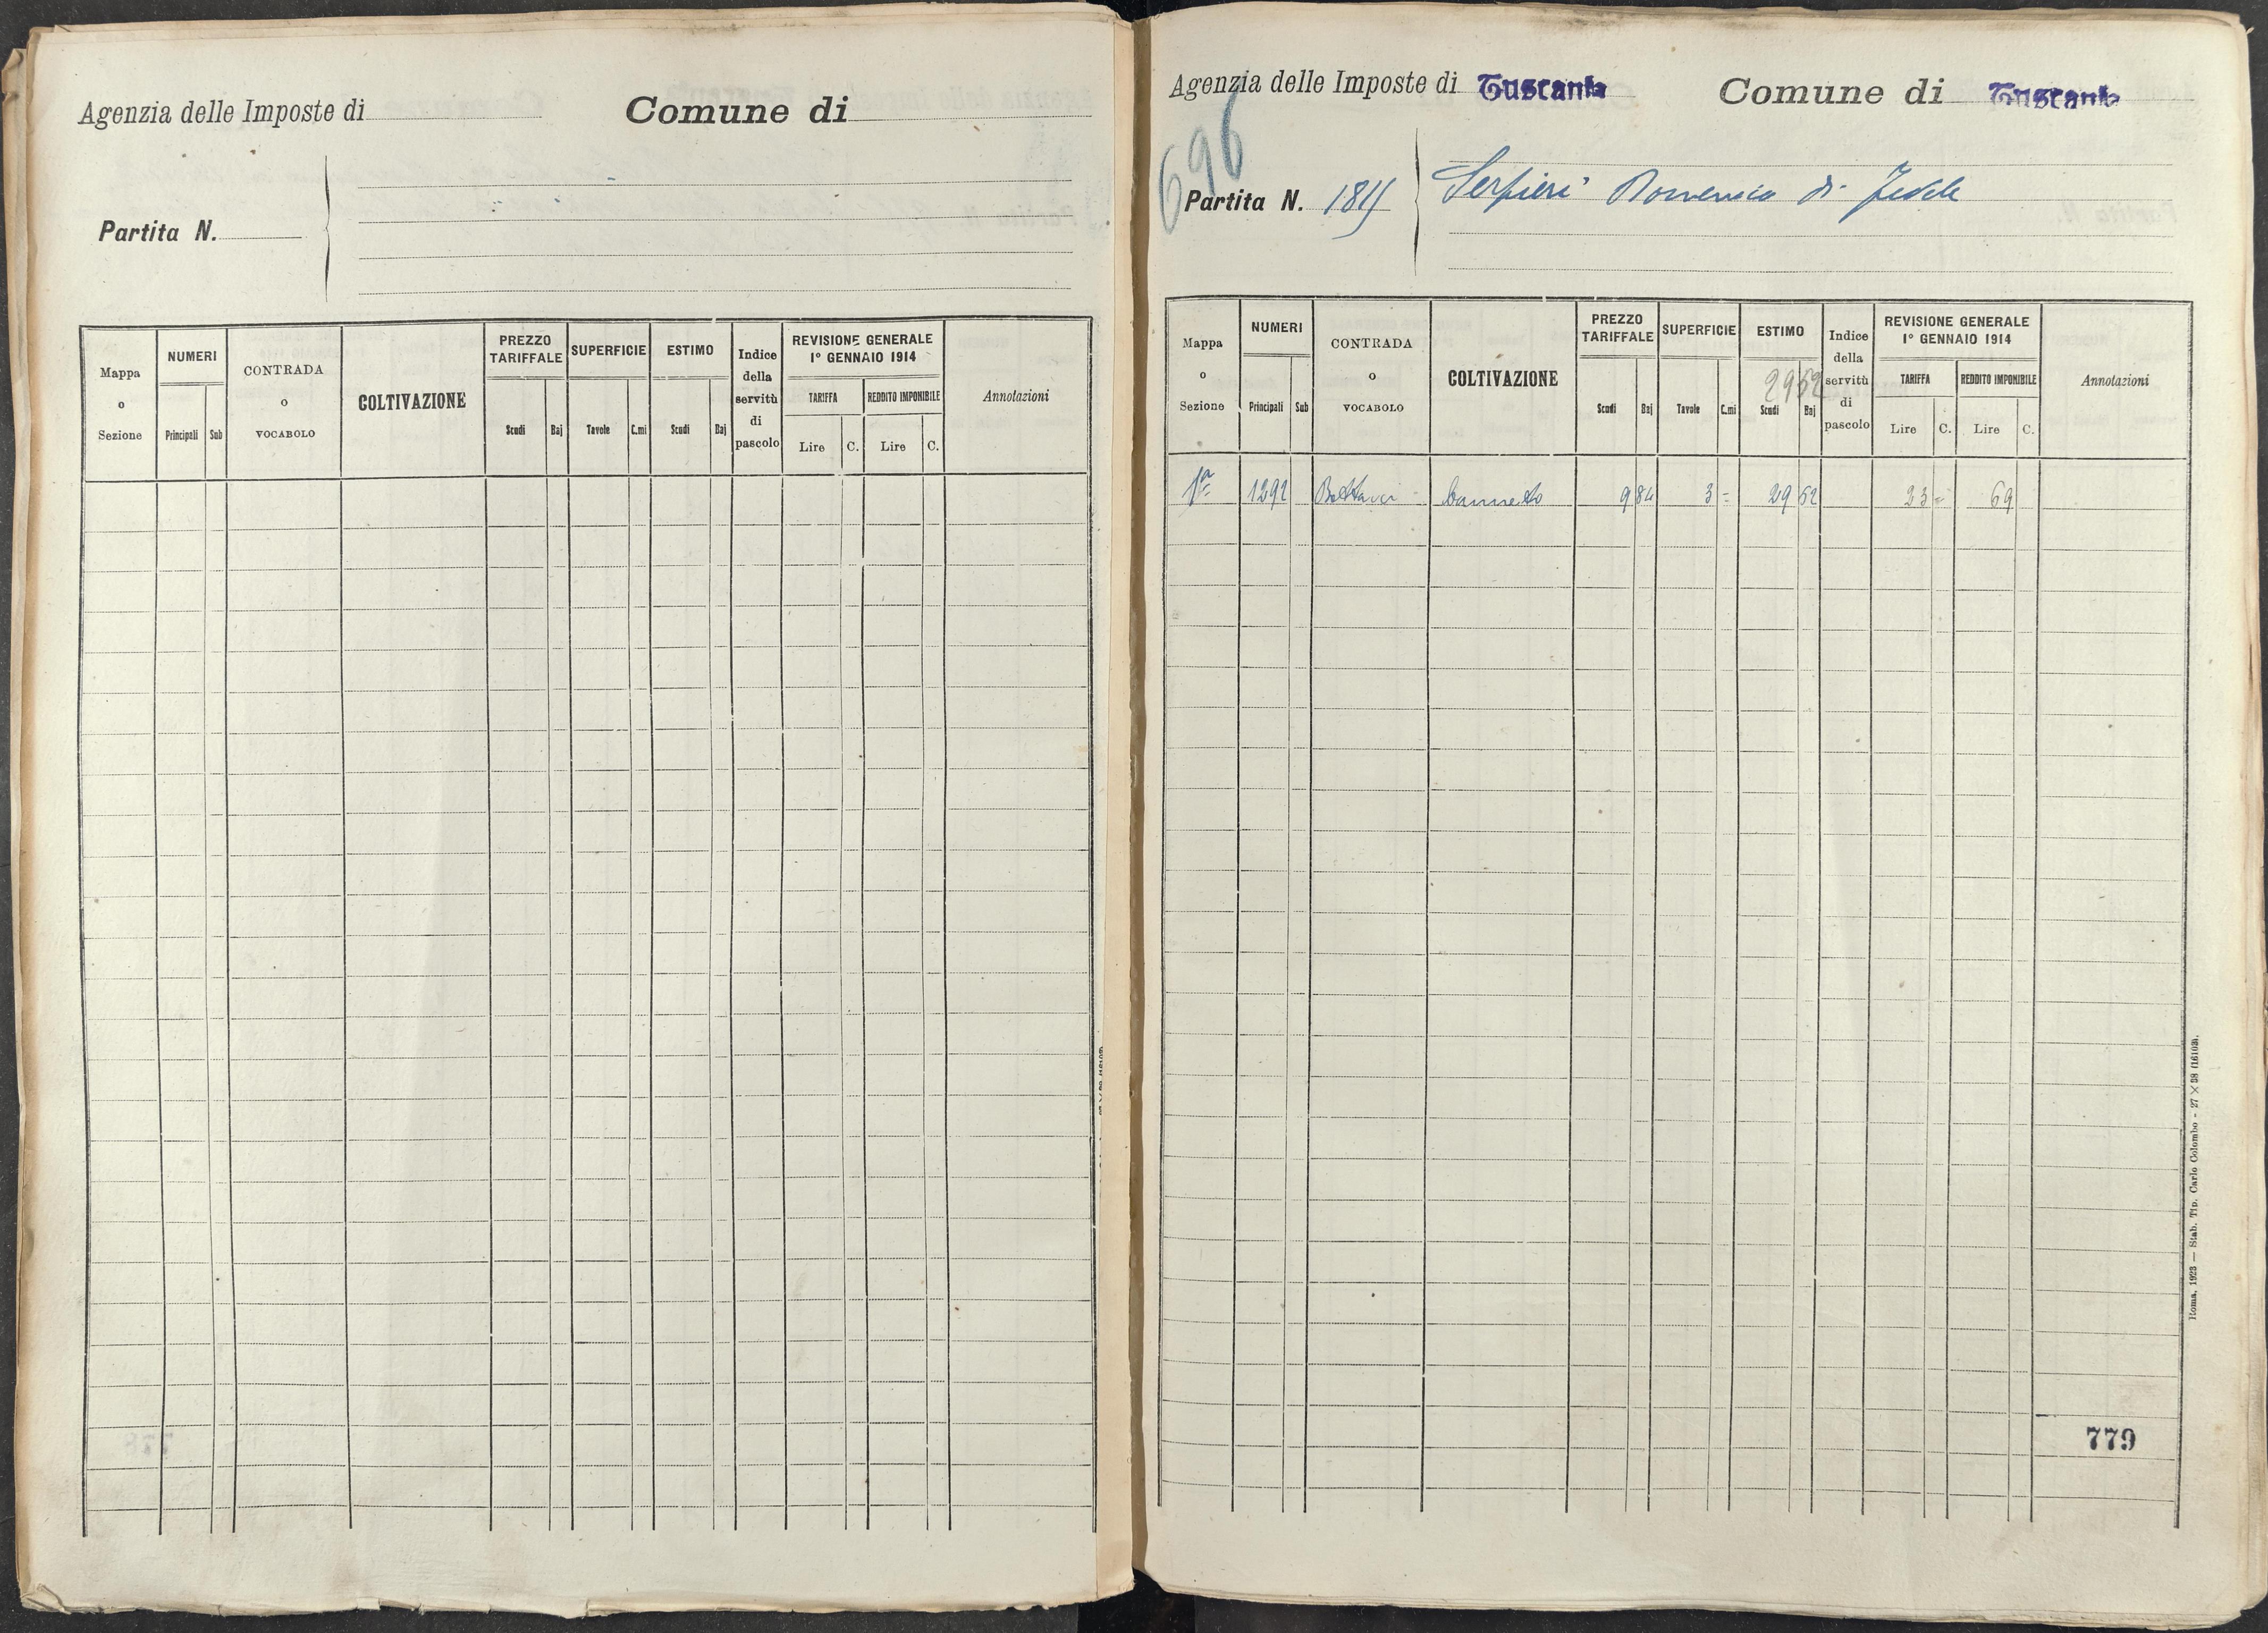 Agenzia delle Imposte di
Comune di
Partita N.
Mappa o Sezione
NUMERI
Principali Sub
CONTRADA o VOCABOLO
COLTIVAZIONE
PREZZO TARIFFALE
Scudi Baj
SUPERFICIE
Tavole C.mi
ESTIMO
Scudi Baj
Indice della servitù di pascolo
REVISIONE GENERALE
1° GENNAIO 1914
TARIFFA
Lire C.
REDDITO IMPONIBILE
Lire C.
Annotazioni
Agenzia delle Imposte di Tuscania
Comune di Tuscania
696
Partita N.
Serpieri Domenico di Fedele
Mappa o Sezione
NUMERI
Principali Sub
CONTRADA o VOCABOLO
COLTIVAZIONE
PREZZO TARIFFALE
Scudi Baj
SUPERFICIE
Tavole C.mi
ESTIMO
2952
Scudi Baj
Indice della servitù di pascolo
REVISIONE GENERALE
1° GENNAIO 1914
TARIFFA
Lire C.
REDDITO IMPONIBILE
Lire C.
Annotazioni
1ª 1292 Canneto 9 84 3 = 29 52 23 = 69
Roma, 1923 — Stab. Tip. Carlo Colombo - 27 × 38 (16102).
779